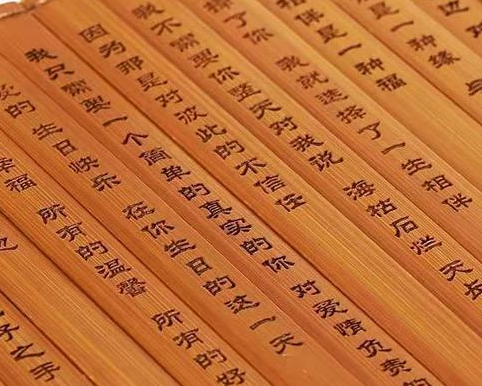 也
是一种缘
相伴是一种福
择了你 我就选择了一生相伴
我不需要你整天对我说 海枯石烂 天长
因为那是对彼此的不信任
我只需要一个简单的真实的你 对爱情负责的
的 生日快乐 在你生日的这一天
幸福 所有的温馨 所有的好
也
子之手